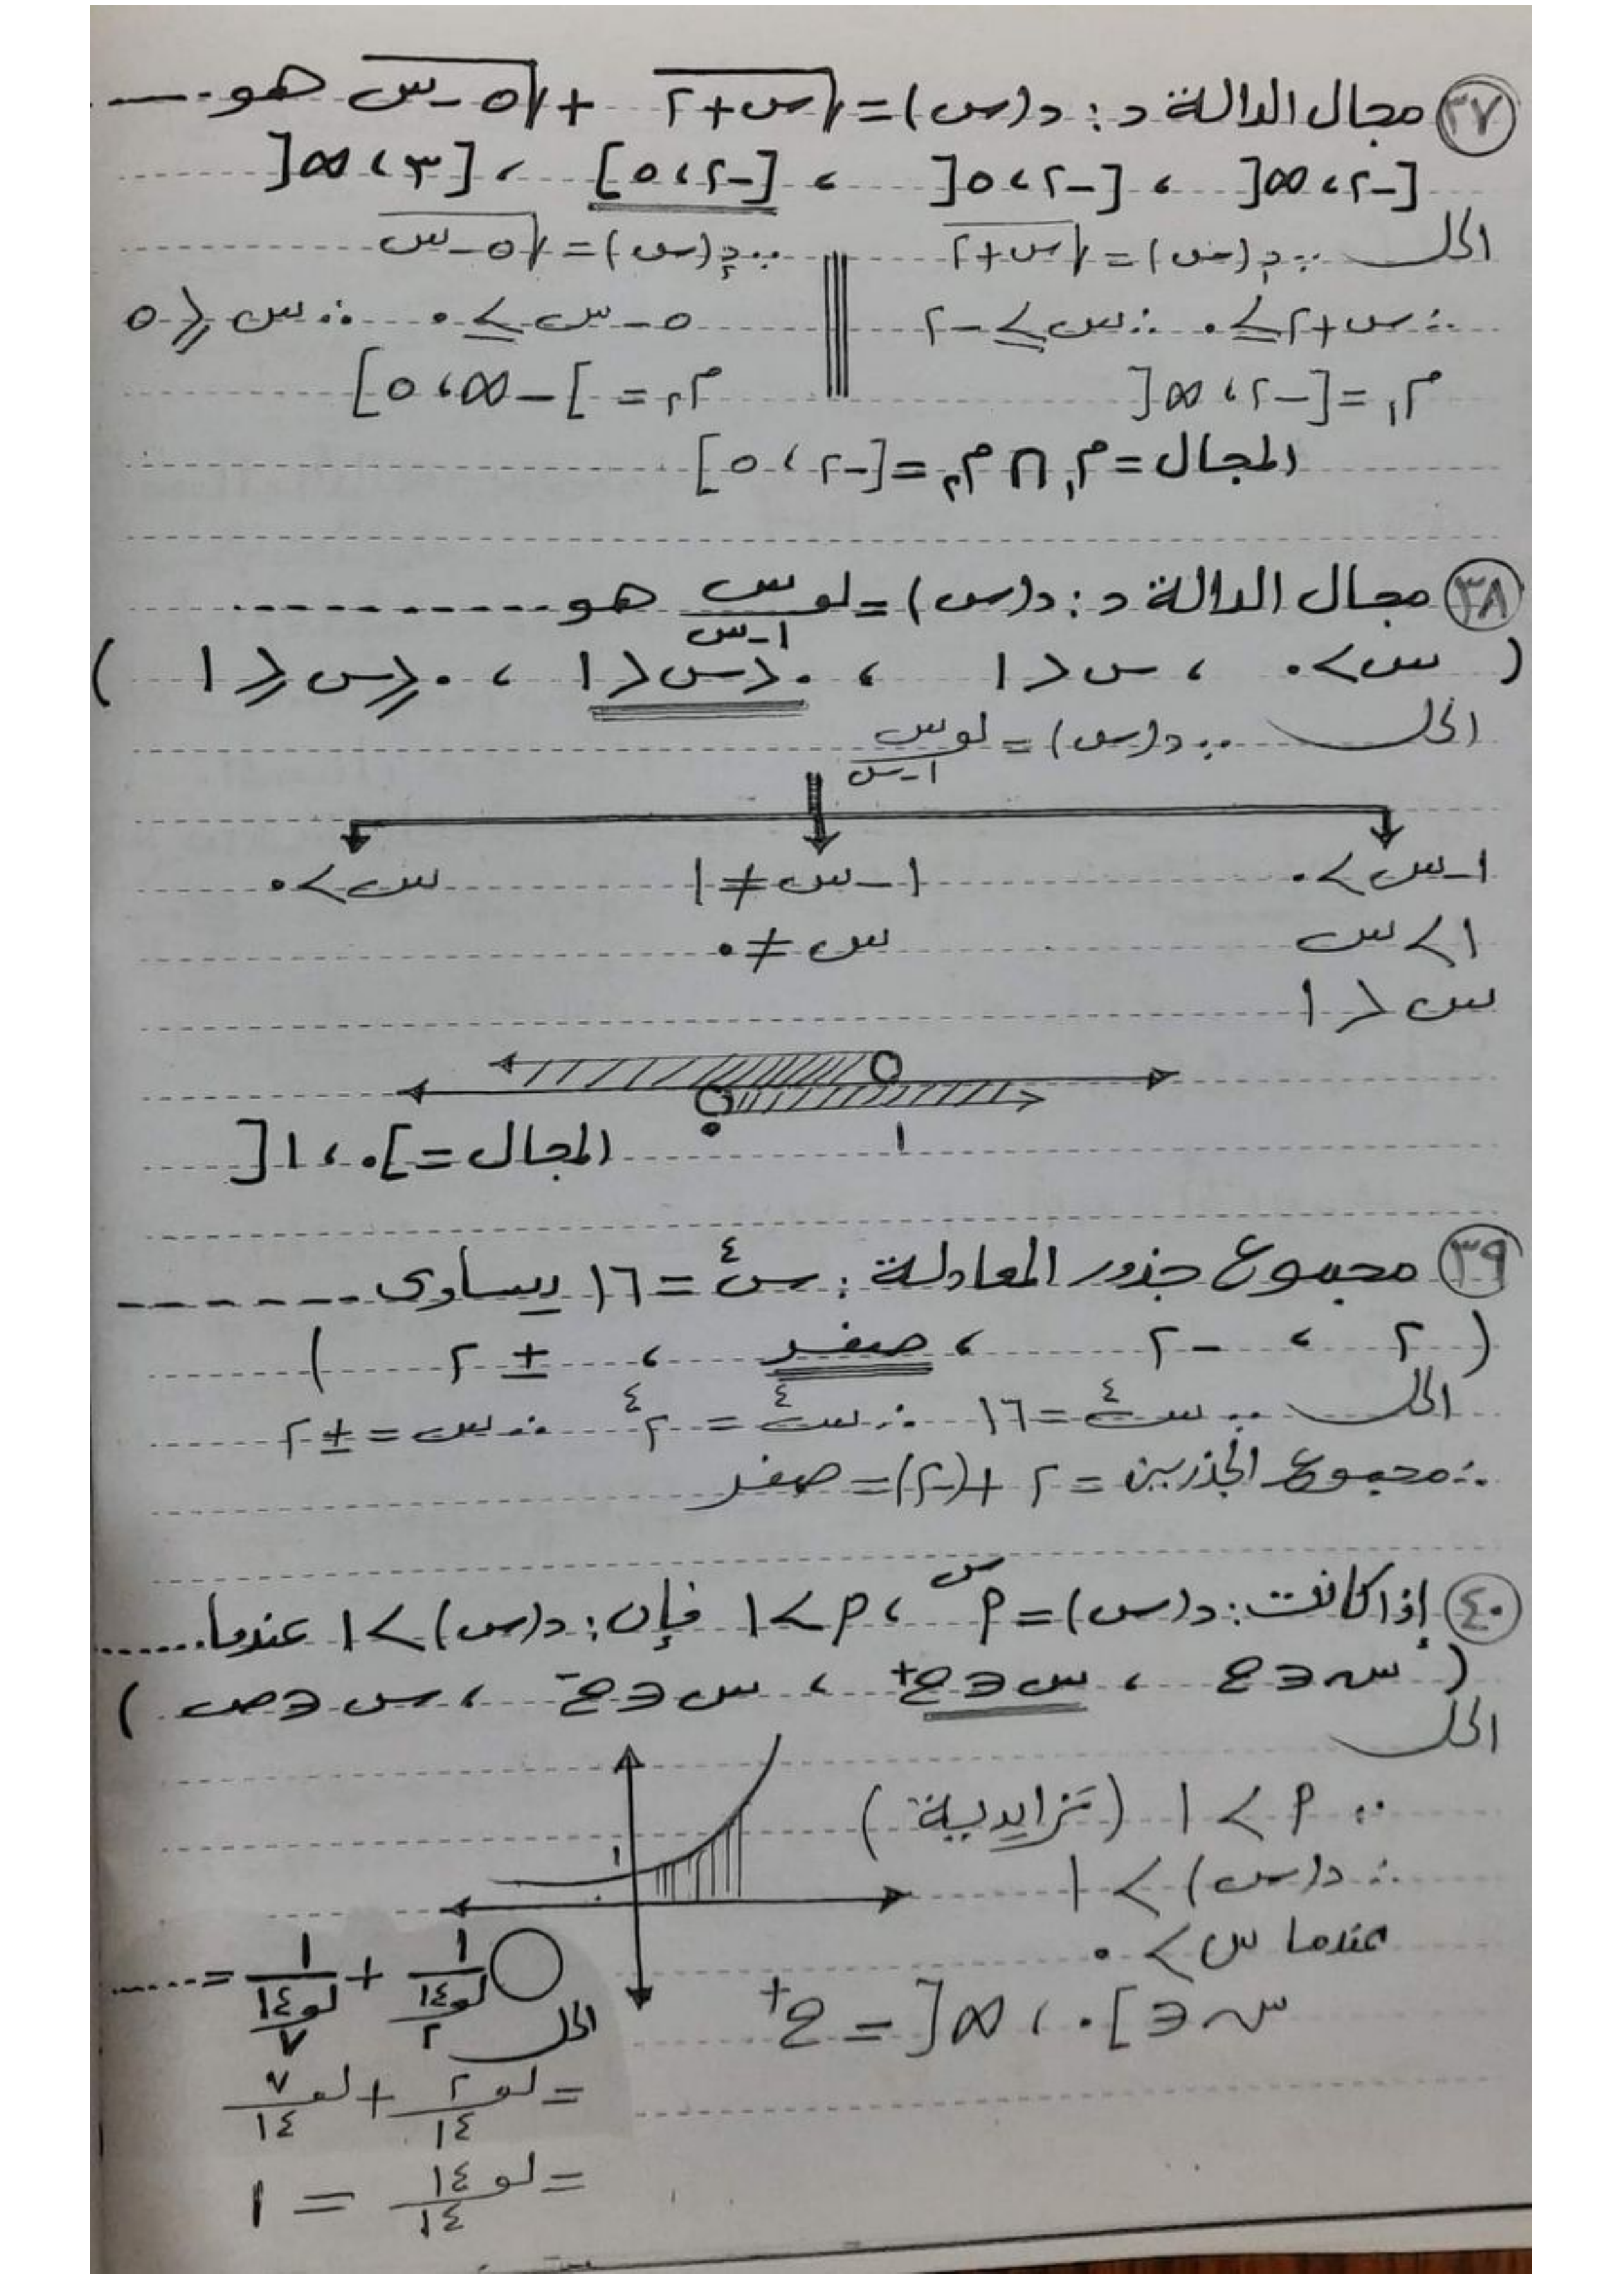 ٣٧ مجال الدالة د : د(س) = √(س+٢) + √(٥-س) هو .....
[-٢ ، ∞[ ، [-٢ ، ٥[ ، [-٢ ، ٥] ، [٣ ، ∞[
الحل ∵ د١(س) = √(س+٢) ∵ د٢(س) = √(٥-س)
∴ س+٢ ≥ ٠ ∴ س ≥ -٢ ٥-س ≥ ٠ ∴ س ≤ ٥
م١ = [-٢ ، ∞[ م٢ = ]-∞ ، ٥]
المجال = م١ ∩ م٢ = [-٢ ، ٥]
٣٨ مجال الدالة د : د(س) = لو_(١-س) س هو ..........
( س > ٠ ، س < ١ ، ٠ < س < ١ ، ٠ ≤ س ≤ ١ )
الحل ∵ د(س) = لو_(١-س) س
١-س > ٠ ١-س ≠ ١ س > ٠
١ > س س ≠ ٠
س < ١
٠ ١
المجال = ]٠ ، ١[
٣٩ مجموع جذور المعادلة : س^٤ = ١٦ يساوى .......
( ٢ ، -٢ ، صفر ، ± ٢ )
الحل ∵ س^٤ = ١٦ ∴ س^٤ = ٢^٤ ∴ س = ± ٢
∴ مجموع الجذرين = ٢ + (-٢) = صفر
٤٠ إذا كانت : د(س) = م^س ، م > ١ فإن : د(س) > ١ عندما .......
( س ∈ ح ، س ∈ ح+ ، س ∈ ح- ، س ∈ ص )
الحل
∵ م > ١ (تزايدية)
١
∴ د(س) > ١
عندما س > ٠
س ∈ ]٠ ، ∞[ = ح+
١/(لو_٢ ١٤) + ١/(لو_٧ ١٤) = .....
الحل
= لو_١٤ ٢ + لو_١٤ ٧
= لو_١٤ ١٤ = ١